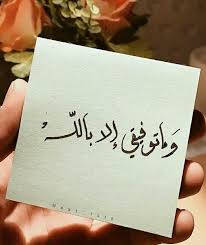 وَما توفيقي إلا باللّه